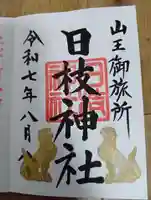 山王御旅所
日枝神社
令和七年八月